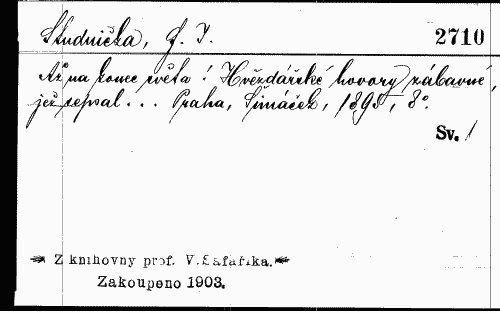 Studnička, F. J.
2710
Až na konec světa! Hvězdářské hovory zábavné,
jež sepsal... Praha, Šimáček, 1895, 8°.
Sv. 1
Z knihovny prof. V. Šafaříka.
Zakoupeno 1903.